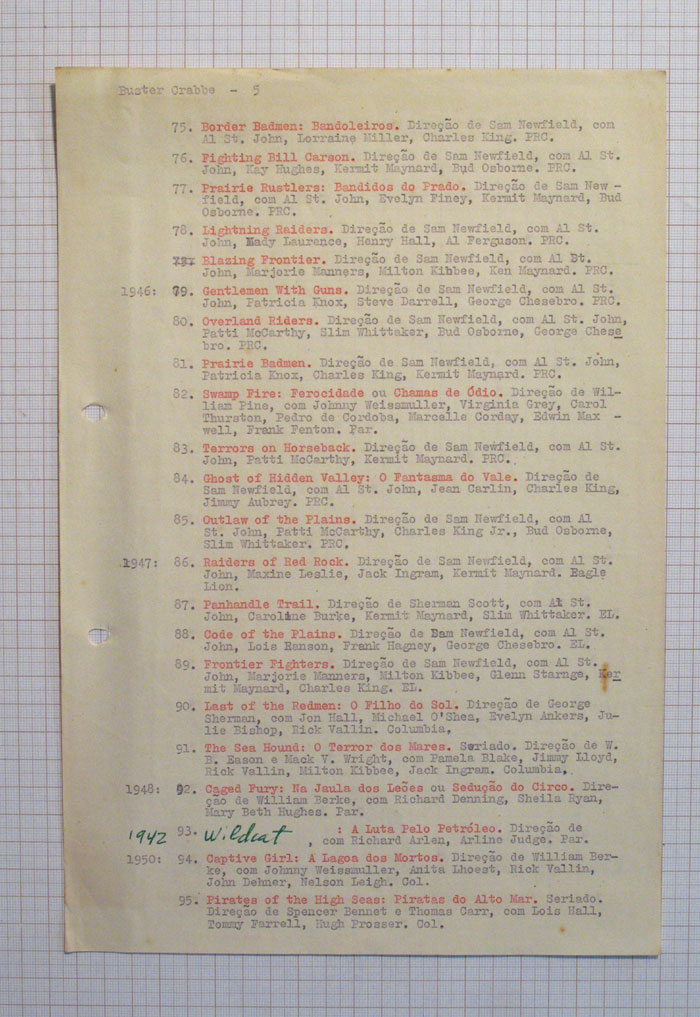 Buster Crabbe - 5
75. Border Badmen: Bandoleiros. Direção de Sam Newfield, com
Al St. John, Lorraine Miller, Charles King. PRC.
76. Fighting Bill Carson. Direção de Sam Newfield, com Al St.
John, Kay Hughes, Kermit Maynard, Bud Osborne. PRC.
77. Prairie Rustlers: Bandidos do Prado. Direção de Sam New -
field, com Al St. John, Evelyn Finey, Kermit Maynard, Bud
Osborne. PRC.
78. Lightning Raiders. Direção de Sam Newfield, com Al St.
John, Mady Laurence, Henry Hall, Al Ferguson. PRC.
Blazing Frontier. Direção de Sam Newfield, com Al St.
John, Marjorie Manners, Milton Kibbee, Ken Maynard. PRC.
1946: 79. Gentlemen With Guns. Direção de Sam Newfield, com Al St.
John, Patricia Knox, Steve Darrell, George Chesebro. PRC.
80. Overland Riders. Direção de Sam Newfield, com Al St. John,
Patti McCarthy, Slim Whittaker, Bud Osborne, George Chese
bro. PRC.
81. Prairie Badmen. Direção de Sam Newfield, com Al St. John,
Patricia Knox, Charles King, Kermit Maynard. PRC.
82. Swamp Fire: Ferocidade ou Chamas de Ódio. Direção de Wil-
liam Pine, com Johnny Weissmuller, Virginia Grey, Carol
Thurston, Pedro de Cordoba, Marcelle Corday, Edwin Max -
well, Frank Fenton. Par.
83. Terrors on Horseback. Direção de Sam Newfield, com Al St.
John, Patti McCarthy, Kermit Maynard. PRC.
84. Ghost of Hidden Valley: O Fantasma do Vale. Direção de
Sam Newfield, com Al St. John, Jean Carlin, Charles King,
Jimmy Aubrey. PRC.
85. Outlaw of the Plains. Direção de Sam Newfield, com Al
St. John, Patti McCarthy, Charles King Jr., Bud Osborne,
Slim Whittaker. PRC.
1947: 86. Raiders of Red Rock. Direção de Sam Newfield, com Al St.
John, Maxine Leslie, Jack Ingram, Kermit Maynard. Eagle
Lion.
87. Panhandle Trail. Direção de Sherman Scott, com Al St.
John, Caroline Burke, Kermit Maynard, Slim Whittaker. EL.
88. Code of the Plains. Direção de Sam Newfield, com Al St.
John, Lois Ranson, Frank Hagney, George Chesebro. EL.
89. Frontier Fighters. Direção de Sam Newfield, com Al St.
John, Marjorie Manners, Milton Kibbee, Glenn Starnge, Ker
mit Maynard, Charles King. EL.
90. Last of the Redmen: O Filho do Sol. Direção de George
Sherman, com Jon Hall, Michael O'Shea, Evelyn Ankers, Ju-
lie Bishop, Rick Vallin. Columbia.
91. The Sea Hound: O Terror dos Mares. Seriado. Direção de W.
B. Eason e Mack V. Wright, com Pamela Blake, Jimmy Lloyd,
Rick Vallin, Milton Kibbee, Jack Ingram. Columbia.
1948: 92. Caged Fury: Na Jaula dos Leões ou Sedução do Circo. Dire-
ção de William Berke, com Richard Denning, Sheila Ryan,
Mary Beth Hughes. Par.
1942 93. Wildcat : A Luta Pelo Petróleo. Direção de
, com Richard Arlen, Arline Judge. Par.
1950: 94. Captive Girl: A Lagoa dos Mortos. Direção de William Ber-
ke, com Johnny Weissmuller, Anita Lhoest, Rick Vallin,
John Dehner, Nelson Leigh. Col.
95. Pirates of the High Seas: Piratas do Alto Mar. Seriado.
Direção de Spencer Bennet e Thomas Carr, com Lois Hall,
Tommy Farrell, Hugh Prosser. Col.